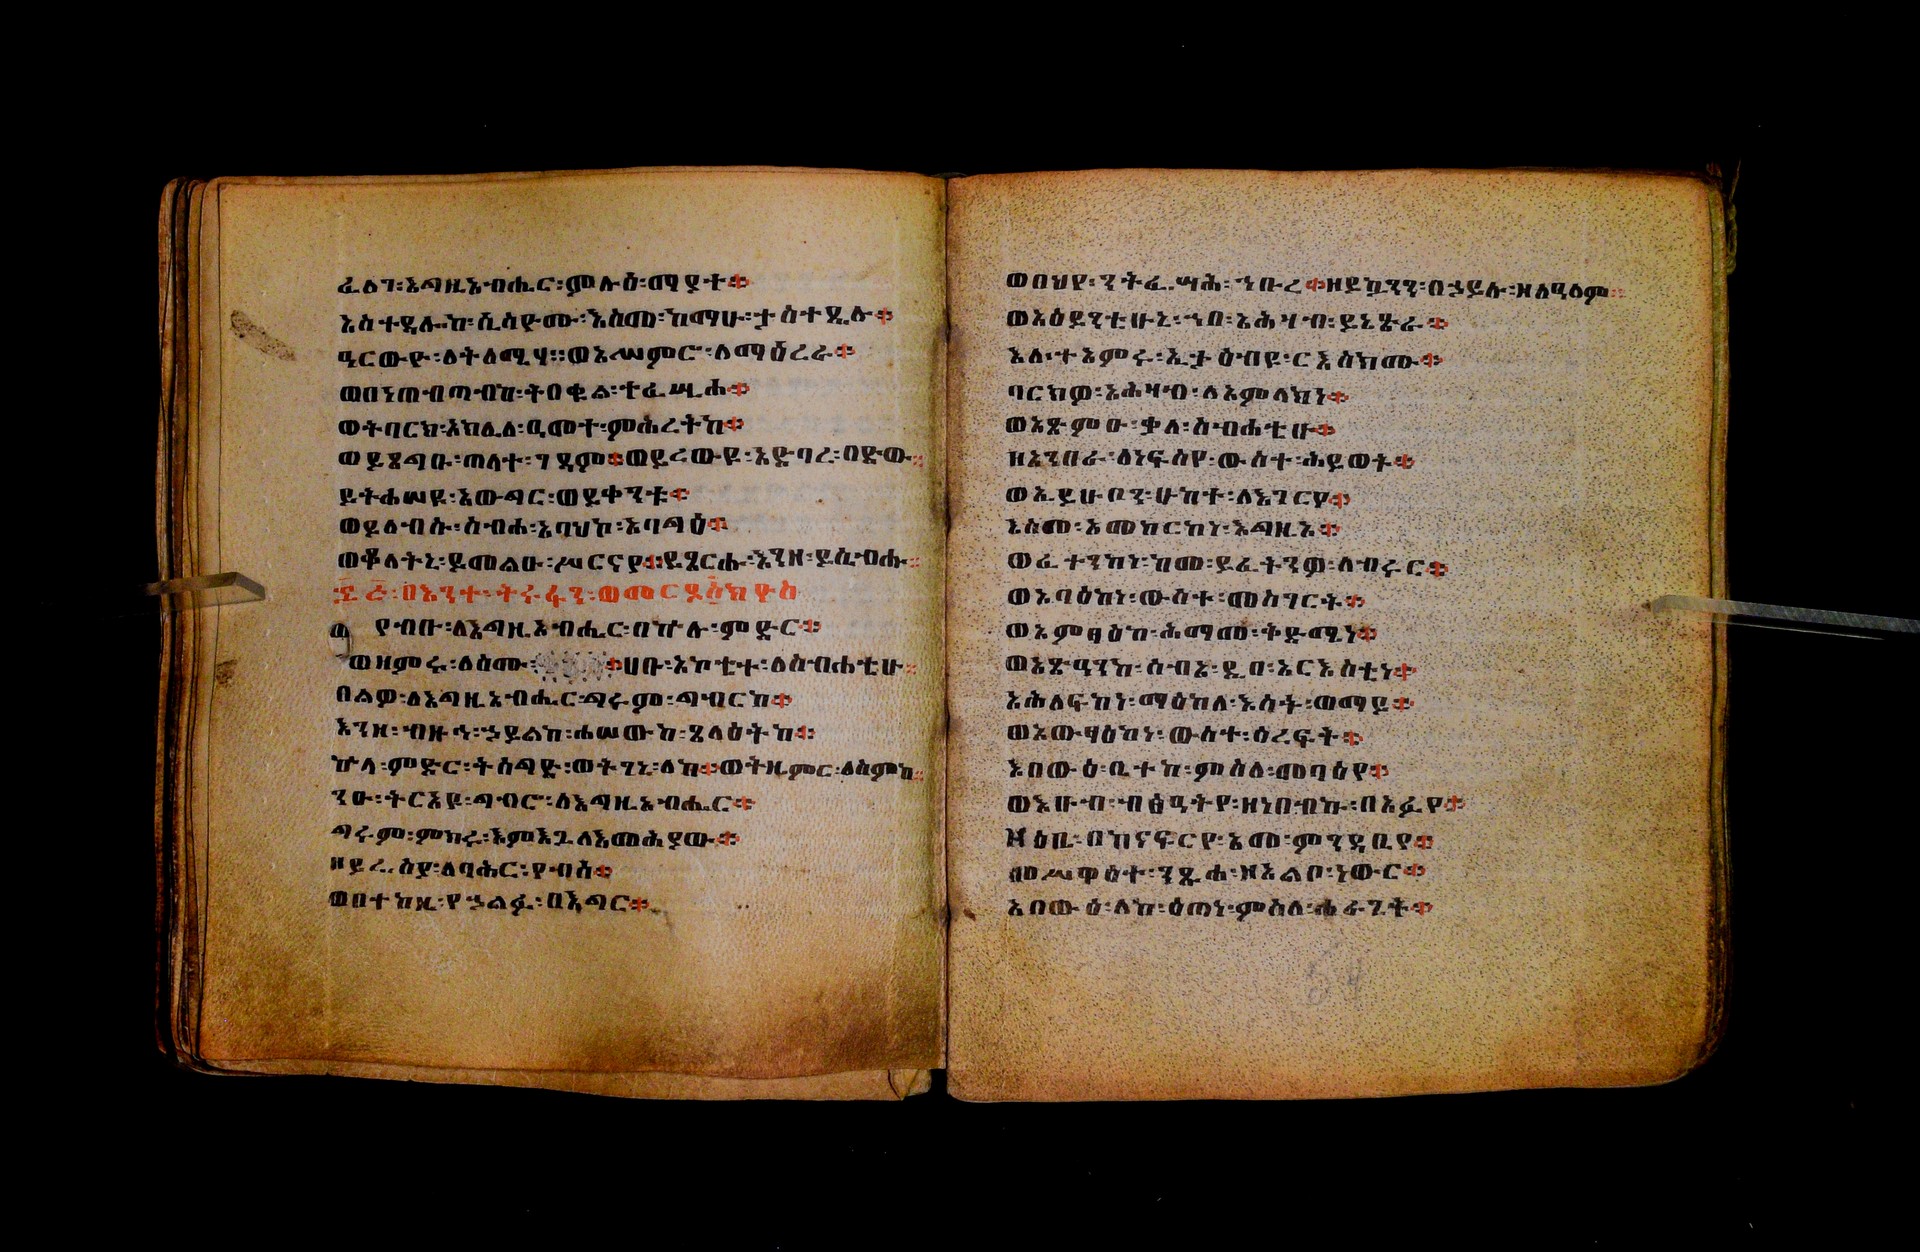 ፈለገ፡እግዚአብሔር፡ምሉዕ፡ማያተ፨
አስተዳሎከ፡ሲሳዮሙ፡እስመ፡ከማሁ፡ታስተዴሉ፨
ዒርውዮ፡ለትለሚሃ፡፡ወአሥምሮ፡ለማዕረራ፨
ወበነጠብጣብከ፡ትበቊል፡ተፈሢሐ፨
ወትባርክ፡አክሊለ፡ዓመተ፡ምሕረትከ፨
ወይጸግቡ፡ጠላተ፡ገዳም፨ወይረውዪ፡አድባረ፡በድው፨
ይትሐሠዪ፡አውግር፡ወይቀንቱ፨
ወይለብሱ፡ስብሐ፡አባህከ፡አባግዕ፨
ወቆላትኒ፡ይመልኡ፡ሥርናየ፨ይጸርሑ፡እንዘ፡ይሴብሑ፨
፷፭፡በእንተ፡ትሩፋን፡ወመርዶክዮስ
የብቡ፡ለእግዚአብሔር፡በኵሉ፡ምድር፨
ወዘምሩ፡ለስሙ፨ሀቡ፡አኰቴተ፡ለስብሐቲሁ፨
በልዎ፡ለእግዚአብሔር፡ግሩም፡ግብርከ፨
እንዘ፡ብዙኅ፡ኃይልከ፡ሐሠውከ፡ጸላዕትከ፨
ኵላ፡ምድር፡ትሰግድ፡ወትገኒ፡ለከ፨ወትዜምር፡ለስምከ፨
ንዑ፡ትርአዩ፡ግብሮ፡ለእግዚአብሔር፨
ግሩም፡ምክሩ፡እምእጓለእመሕያው፨
ዘይረስያ፡ለባሕር፡የብሰ፨
ወበተከዜ፡የኃልፉ፡በእግር፨
ወበህየ፡ንትፈሣሕ፡ኅቡረ፨ዘይኴንን፡በኃይሉ፡ዘለዓለም፨
ወአዕይንቲሁኒ፡ኀበ፡አሕዛብ፡ይኔጽራ፨
እለ፡ተአምሩ፡ኢታዕብዩ፡ርእስክሙ፨
ባርክዎ፡አሕዛብ፡ለአምላክነ፨
ወአጽምዑ፡ቃለ፡ስብሐቲሁ፨
ዘአንበራ፡ለነፍስየ፡ውስተ፡ሕይወት፨
ወኢይሁቦን፡ሁከተ፡ለእገርየ፨
እስመ፡አመከርከነ፡እግዚኦ፨
ወፈተንከነ፡ከመ፡ይፈትንዎ፡ለብሩር፨
ወአባዕከነ፡ውስተ፡መስገርት፨
ወአምፃዕከ፡ሕማመ፡ቅድሜነ፨
ወአጽዓንከ፡ሰብአ፡ዲበ፡አርእስቲነ፨
አሕለፍከነ፡ማዕከለ፡እሳት፡ወማይ፨
ወአውፃዕከነ፡ውስተ፡ዕረፍት፨
እበውዕ፡ቤተከ፡ምስለ፡መባዕየ፨
ወእሁብ፡ብፅዓትየ፡ዘነበብኩ፡በአፉየ፨
ዘዕቤ፡በከናፍርየ፡አመ፡ምንዳቤየ፨
መሥዋዕተ፡ንጹሐ፡ዘአልቦ፡ነውር፨
አበውዕ፡ለከ፡ዕጣነ፡ምስለ፡ሐራጊት፨